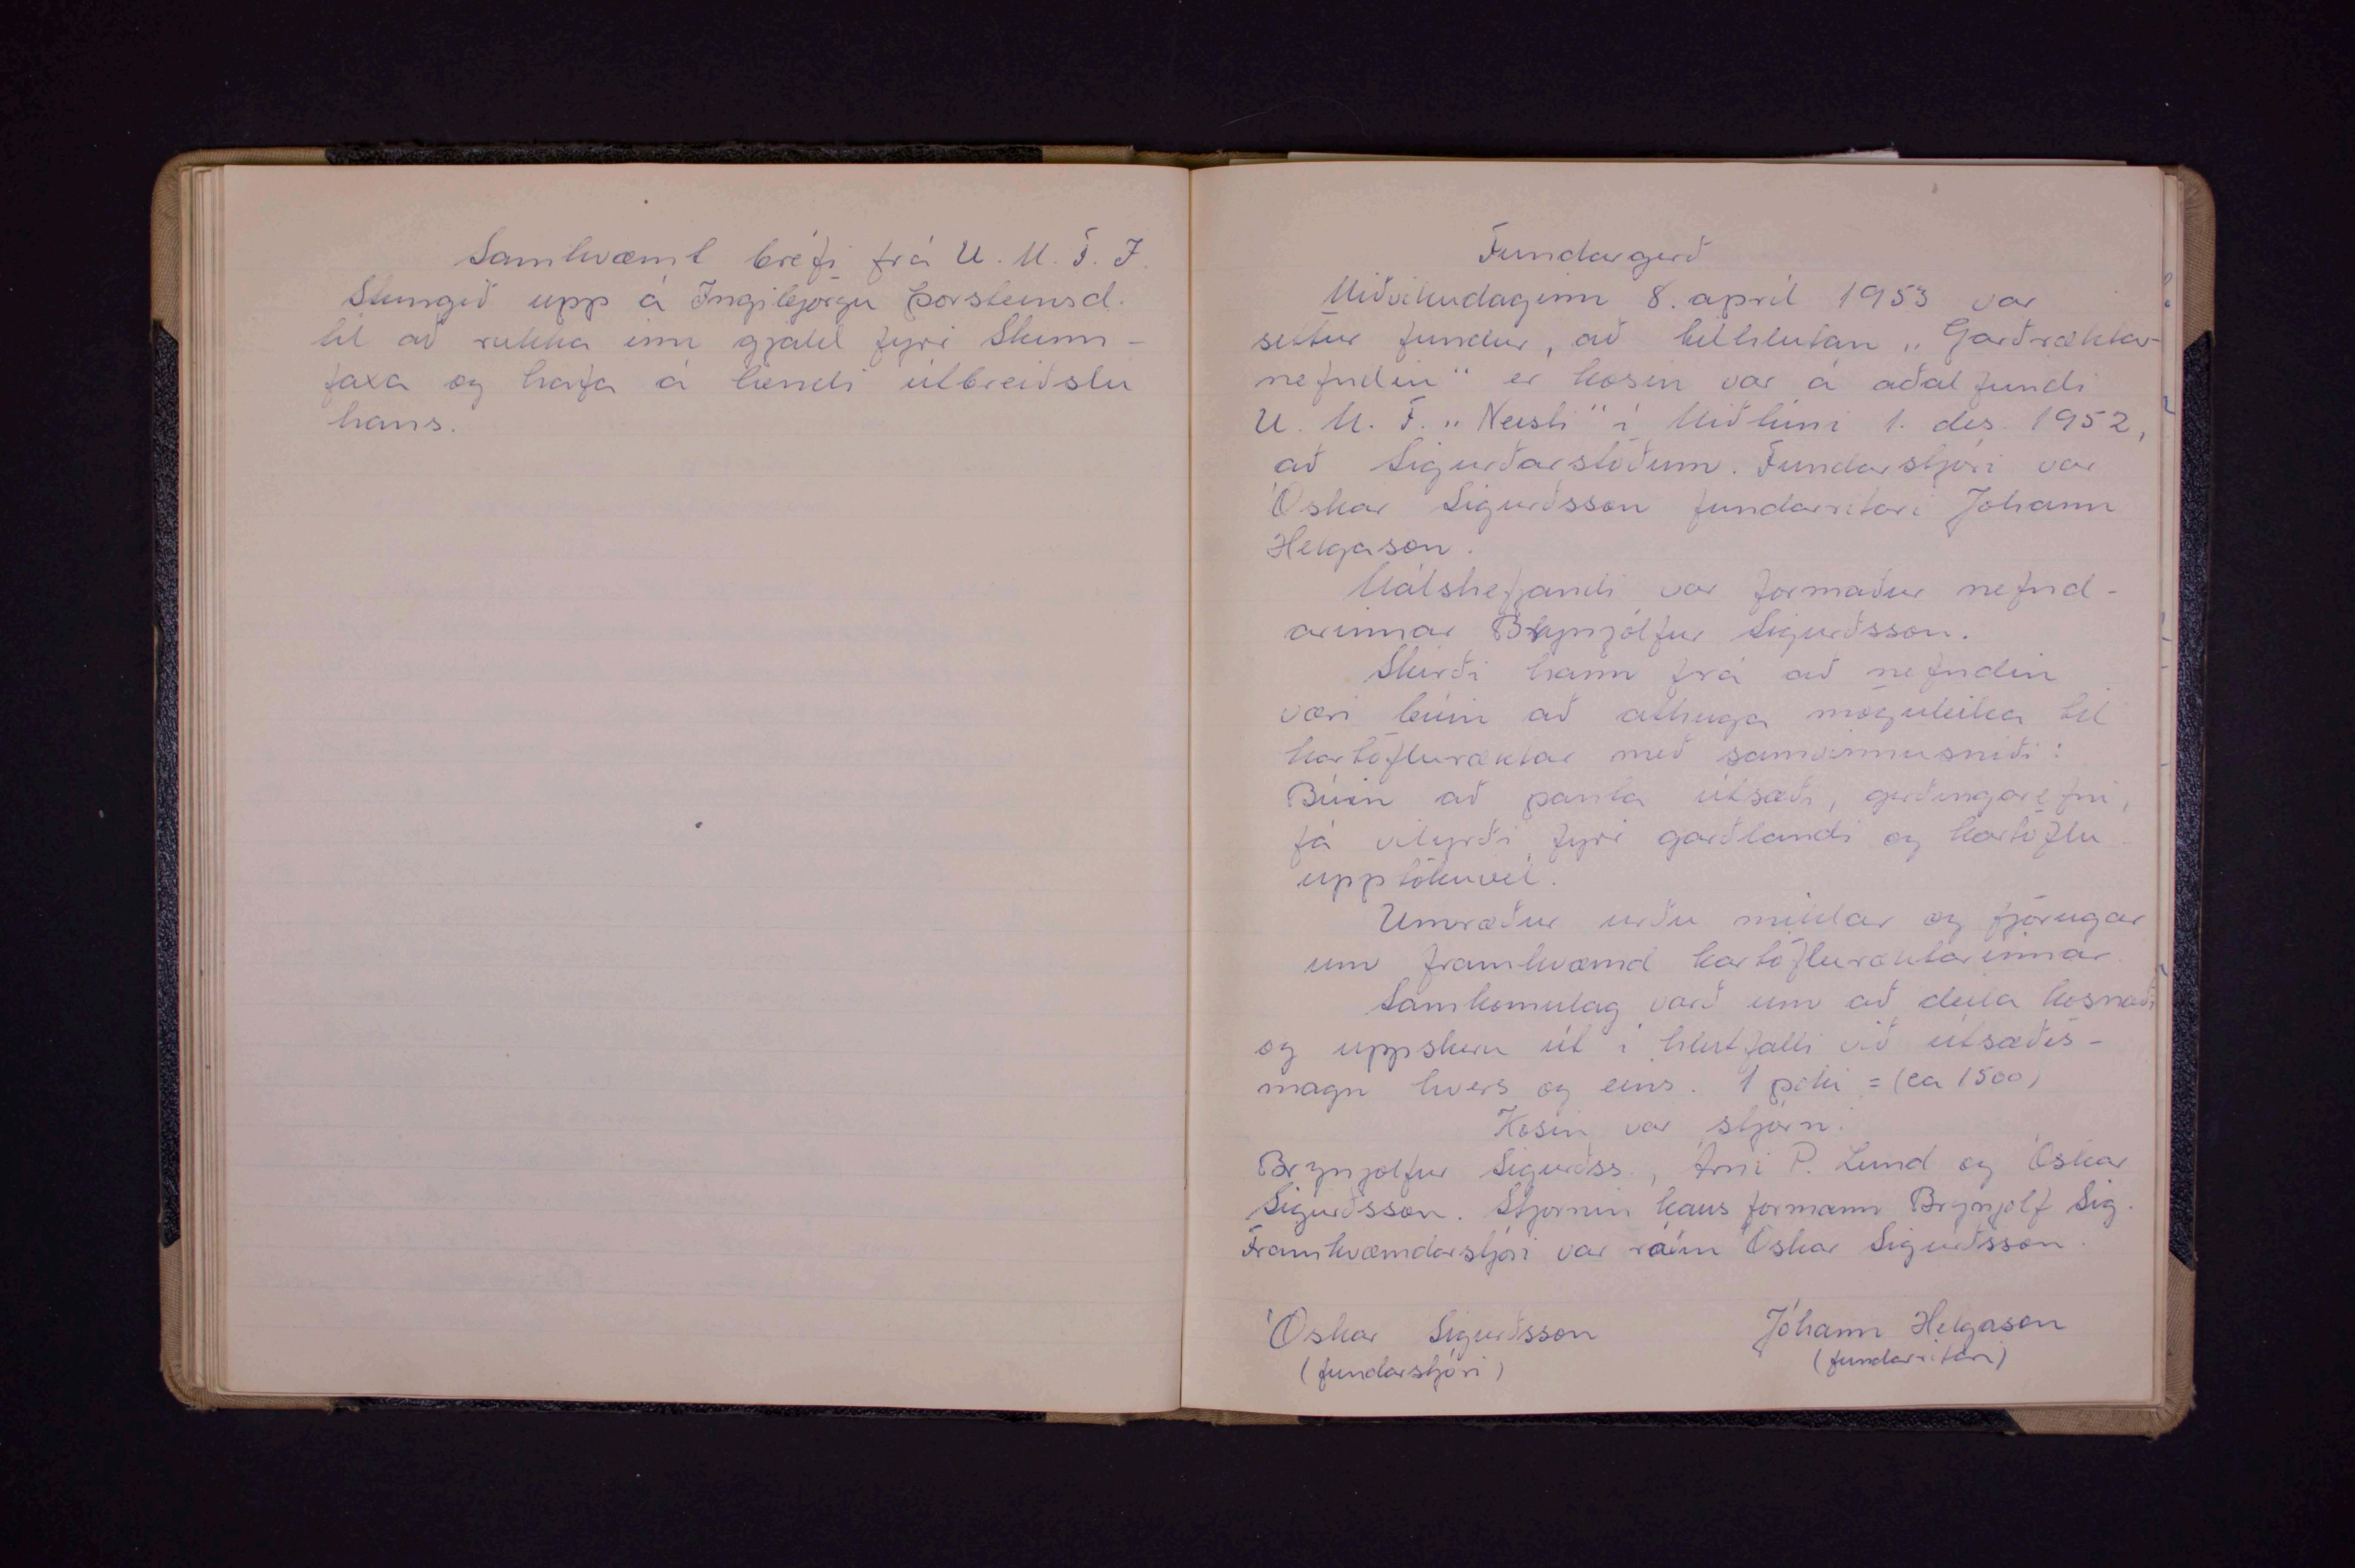 Samkvæmt bréfi frá U. M. F. Í.
Stungið upp á Ingibjörgu Þorsteinsd.
til að rukka inn gjald fyri Skinn-
faxa og hafa á hendi útbreiðslu
hans.
Fundargerð
Miðvikudaginn 8. apríl 1953 var
settur fundur, að tilhlutan „Garðræktar-
nefndin" er kosin var á aðalfundi
U. M. F. „Neisti" í Miðtúni 1. des. 1952,
að Sigurðarstöðum. Fundarstjóri var
Óskar Sigurðsson fundarritari Jóhann
Helgason.
Málshefjandi var formaður nefnd-
arinnar Brynjólfur Sigurðsson.
Skírði hann frá að nefndin
væri búin að athuga möguleika til
kartöfluræktar með samvinnusniði:
Búin að panta útsæði, girðingarefni,
fá vilyrði fyri garðlandi og kartöflu
upptökuvél.
Umræður urðu miklar og fjörugar
um framkvæmd kartöfluræktarinnar
Samkomulag varð um að deila kosnaði
og uppskeru út í hlutfalli við útsæðis-
magn hvers og eins. 1 poki = (ca 1500)
Kosin var stjórn:
Brynjólfur Sigurðss., Árni P. Lund og Óskar
Sigurðsson. Stjórnin kaus formann Brynjólf Sig.
Framkvæmdarstjóri var ráðin Óskar Sigurðsson.
Óskar Sigurðsson
(fundarstjóri)
Jóhann Helgason
(fundarritari)